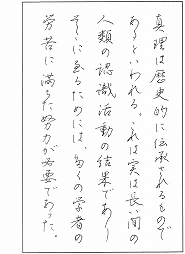 真理は歴史的に伝承されるもので
あるといわれる。これは実は長い間の
人類の認識活動の結果であり
そこに至るためには、多くの学者の
労苦に満ちた努力が必要であった。